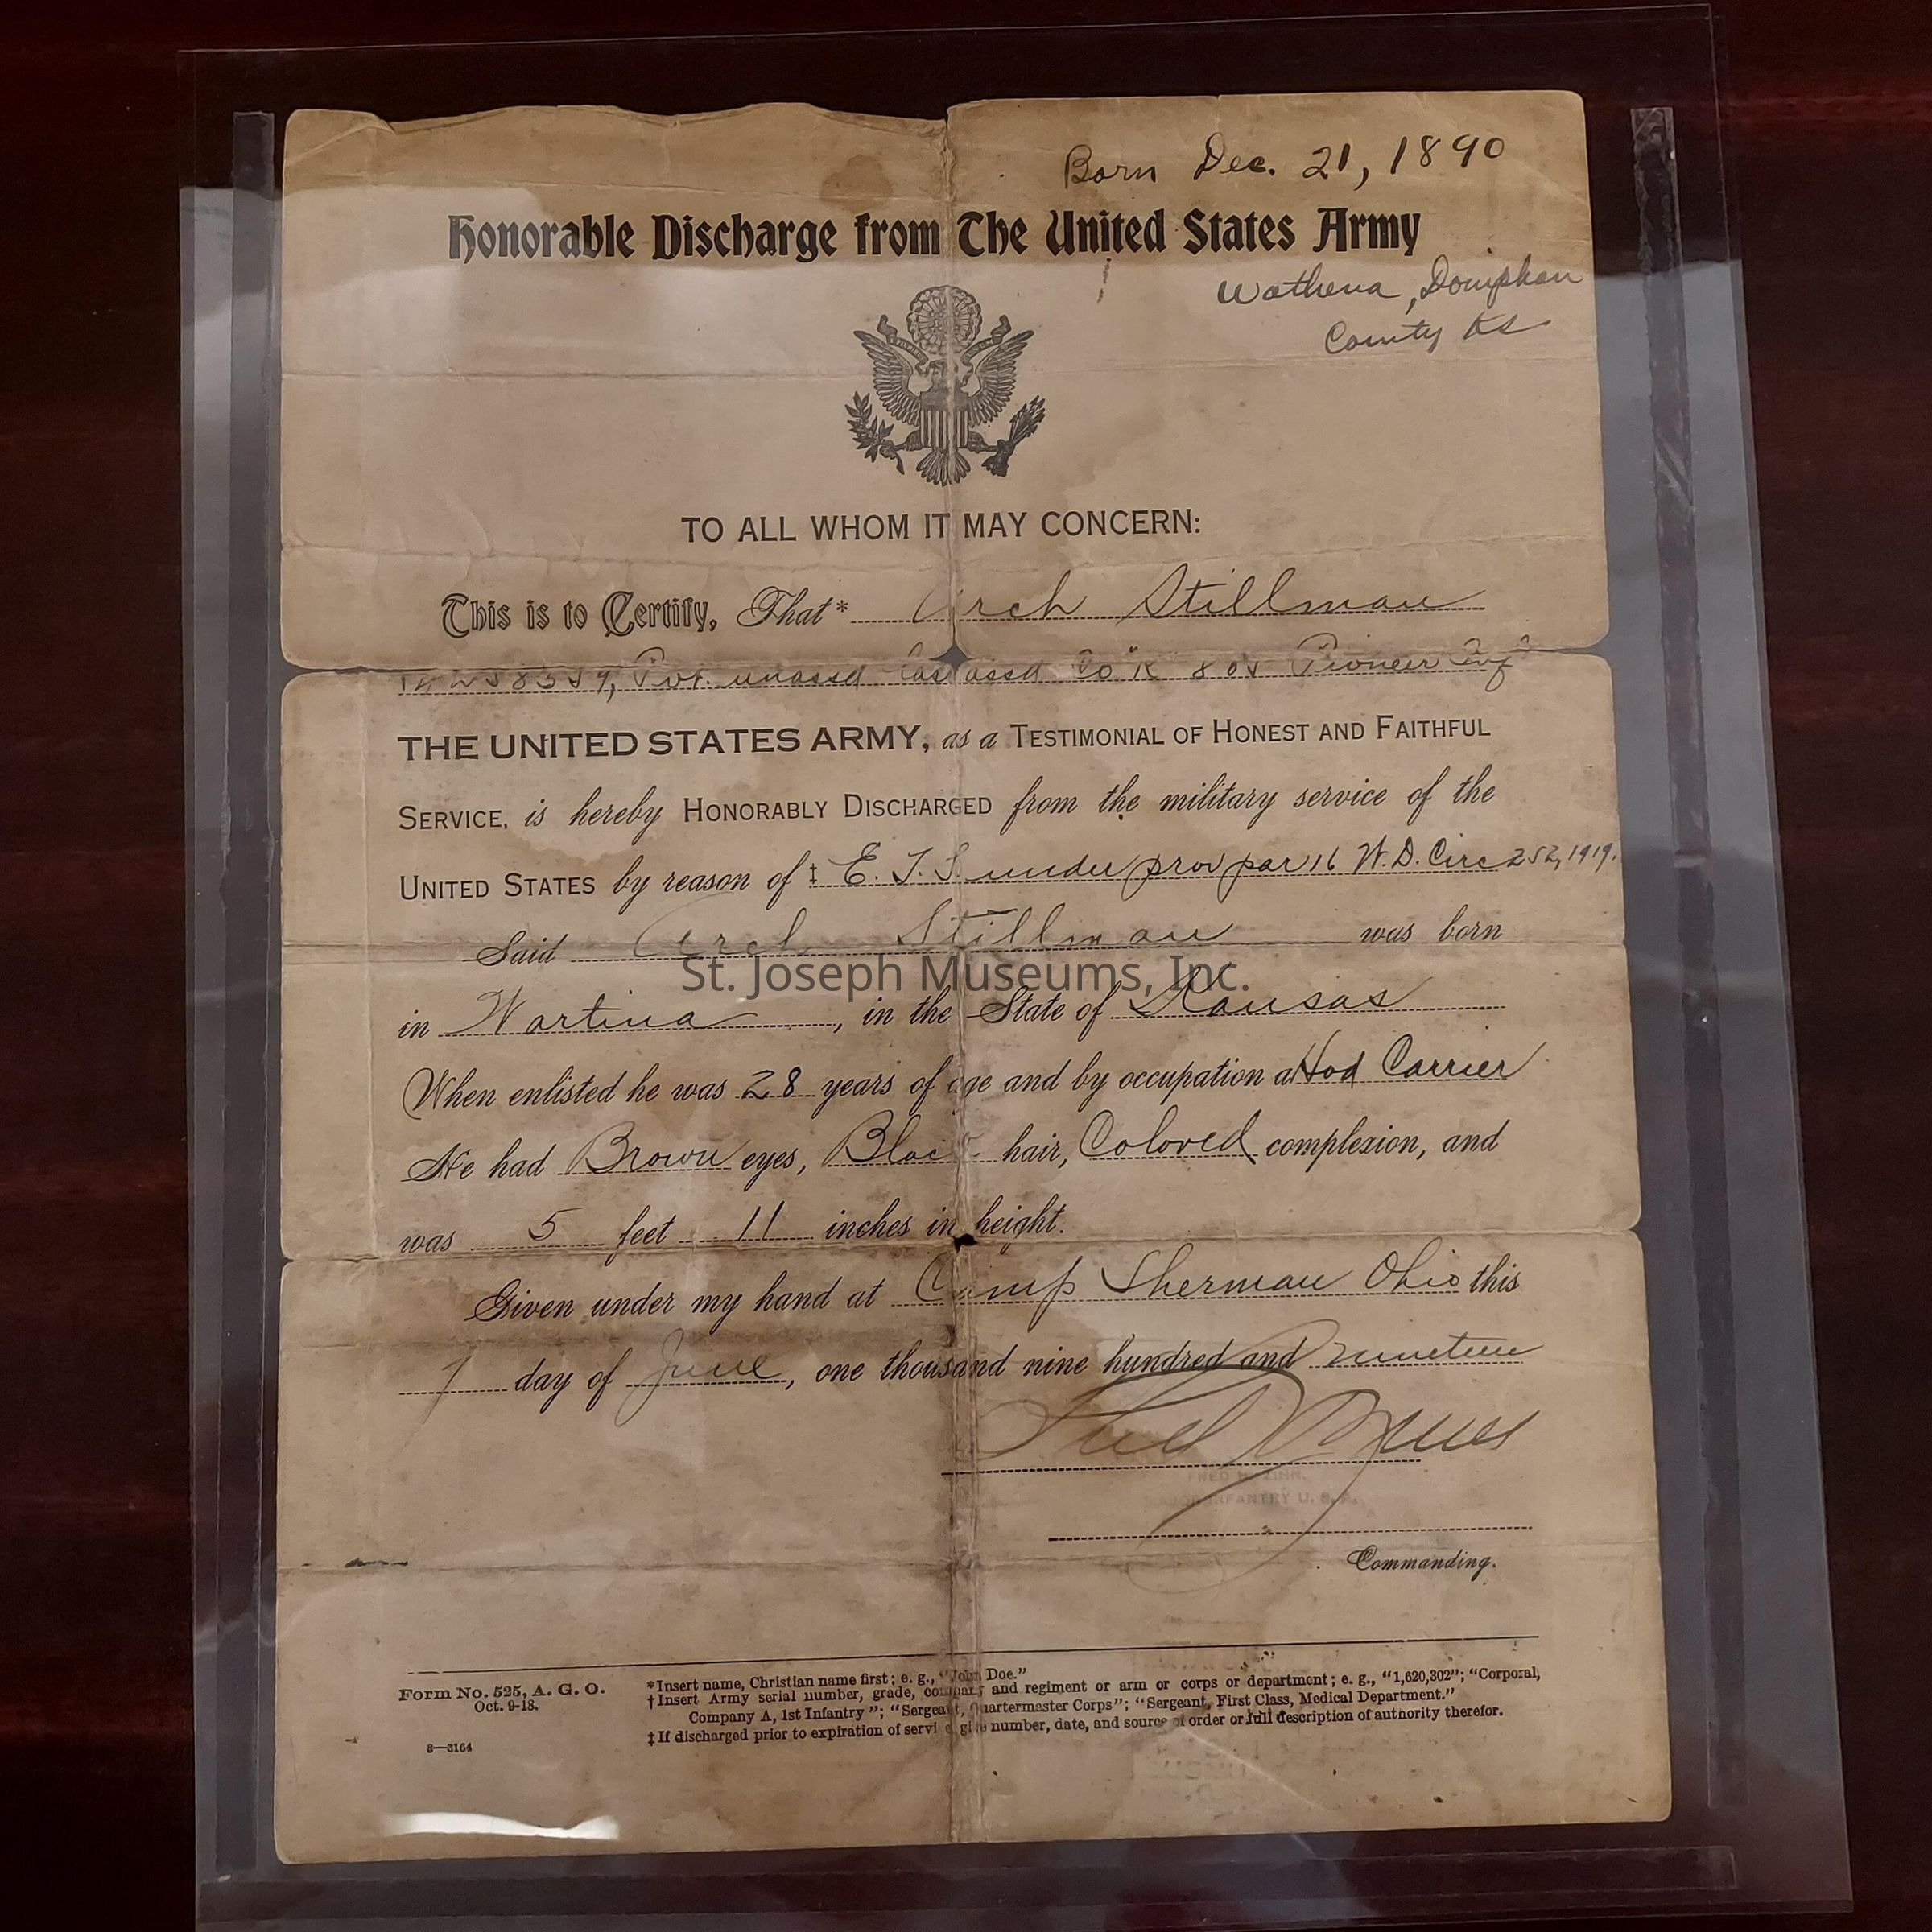 Born Dec. 21, 1890
Honorable Discharge from The United States Army
Wathena, Doniphan
County Ks
TO ALL WHOM IT MAY CONCERN:
This is to Certify, That* Arch Stillman
Pvt. unassd Last assd Co "K" 805 Pioneer Inf
THE UNITED STATES ARMY, as a TESTIMONIAL OF HONEST AND FAITHFUL
SERVICE, is hereby HONORABLY DISCHARGED from the military service of the
UNITED STATES by reason of ‡ E. T. S. under prov par 16 W.D. Circ 252, 1919.
Said Arch Stillman was born
in Wartina, in the State of Kansas
When enlisted he was 28 years of age and by occupation a Hod Carrier
He had Brown eyes, Black hair, Colored complexion, and
was 5 feet 11 inches in height.
Given under my hand at Camp Sherman Ohio this
7 day of June, one thousand nine hundred and nineteen
FRED M. ZINN.
INFANTRY U. S. A.
Commanding.
Form No. 525, A. G. O.
Oct. 9-18.
*Insert name, Christian name first; e. g., "John Doe."
†Insert Army serial number, grade, company and regiment or arm or corps or department; e. g., "1,620,302"; "Corporal,
Company A, 1st Infantry"; "Sergeant, Quartermaster Corps"; "Sergeant, First Class, Medical Department."
‡If discharged prior to expiration of service, give number, date, and source of order or full description of authority therefor.
3—3164
St. Joseph Museums, Inc.